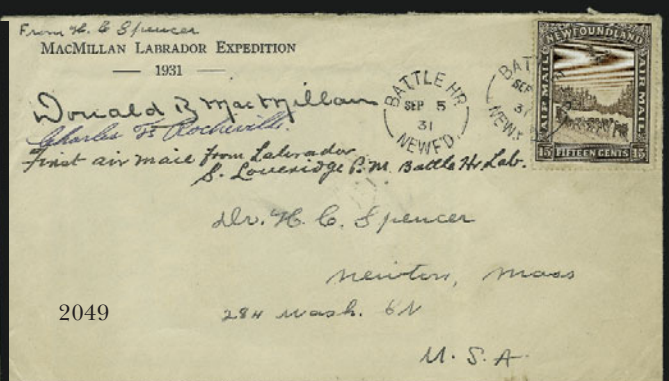 From H. C. Spencer
MACMILLAN LABRADOR EXPEDITION
— 1931 —
Donald B MacMillan
Charles F. Rocheville.
First air mail from Labrador
S. Loveridge P.M. Battle Hr Lab.
BATTLE HR
SEP 5
31
NEWF'D.
BAT
SEP
31
NEWF
NEWFOUNDLAND
AIR MAIL
AIR MAIL
15 FIFTEEN CENTS 15
Dr. H. C. Spencer
Newton, Mass
284 Wash. St
U.S.A.
2049